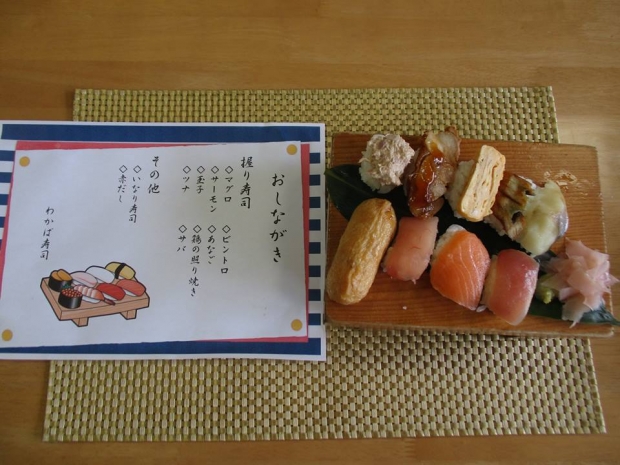 おしながき
握り寿司
◇マグロ
◇サーモン
◇玉子
◇ツナ
◇ビントロ
◇あなご
◇鶏の照り焼き
◇サバ
その他
◇いなり寿司
◇赤だし
わかば寿司